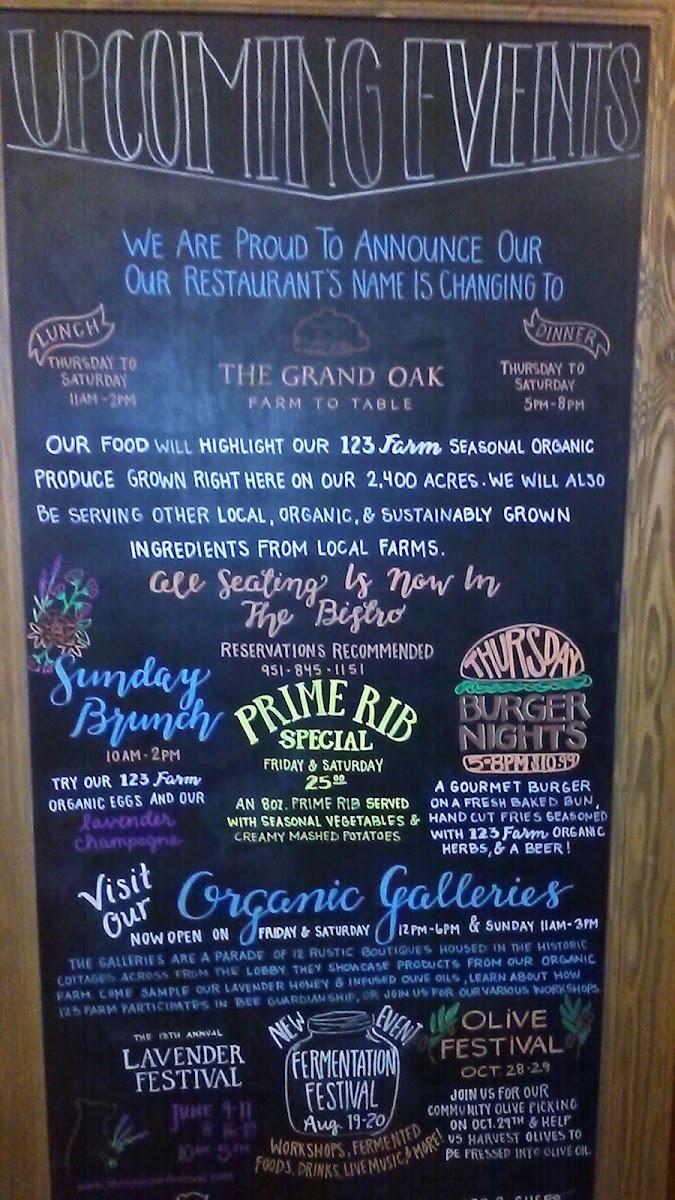 UPCOMING EVENTS
WE ARE PROUD TO ANNOUNCE OUR
OUR RESTAURANT'S NAME IS CHANGING TO
LUNCH
THURSDAY TO
SATURDAY
11AM - 2PM
THE GRAND OAK
FARM TO TABLE
DINNER
THURSDAY TO
SATURDAY
5PM - 8PM
OUR FOOD WILL HIGHLIGHT OUR 123 Farm SEASONAL ORGANIC
PRODUCE GROWN RIGHT HERE ON OUR 2,400 ACRES. WE WILL ALSO
BE SERVING OTHER LOCAL, ORGANIC, & SUSTAINABLY GROWN
INGREDIENTS FROM LOCAL FARMS.
All Seating Is Now In
The Bistro
RESERVATIONS RECOMMENDED
951-845-1151
Sunday
Brunch
10AM - 2PM
TRY OUR 123 Farm
ORGANIC EGGS AND OUR
lavender
champagne
PRIME RIB
SPECIAL
FRIDAY & SATURDAY
25.00
AN 8OZ. PRIME RIB SERVED
WITH SEASONAL VEGETABLES &
CREAMY MASHED POTATOES
THURSDAY
BURGER
NIGHTS
5-8PM $10.99
A GOURMET BURGER
ON A FRESH BAKED BUN,
HAND CUT FRIES SEASONED
WITH 123 Farm ORGANIC
HERBS, & A BEER!
Visit
Our
Organic Galleries
NOW OPEN ON FRIDAY & SATURDAY 12PM-6PM & SUNDAY 11AM-3PM
THE GALLERIES ARE A PARADE OF 12 RUSTIC BOUTIQUES HOUSED IN THE HISTORIC
COTTAGES ACROSS FROM THE LOBBY. THEY SHOWCASE PRODUCTS FROM OUR ORGANIC
FARM. COME SAMPLE OUR LAVENDER HONEY & INFUSED OLIVE OILS, LEARN ABOUT HOW
123 FARM PARTICIPATES IN BEE GUARDIANSHIP, OR JOIN US FOR OUR VARIOUS WORKSHOPS.
THE 13TH ANNUAL
LAVENDER
FESTIVAL
JUNE 9-11
& 16-19
10AM-5PM
NEW EVENT
FERMENTATION
FESTIVAL
Aug. 19-20
WORKSHOPS, FERMENTED
FOODS, DRINKS, LIVE MUSIC, & MORE!
OLIVE
FESTIVAL
OCT 28-29
JOIN US FOR OUR
COMMUNITY OLIVE PICKING
ON OCT. 29TH & HELP
US HARVEST OLIVES TO
BE PRESSED INTO OLIVE OIL